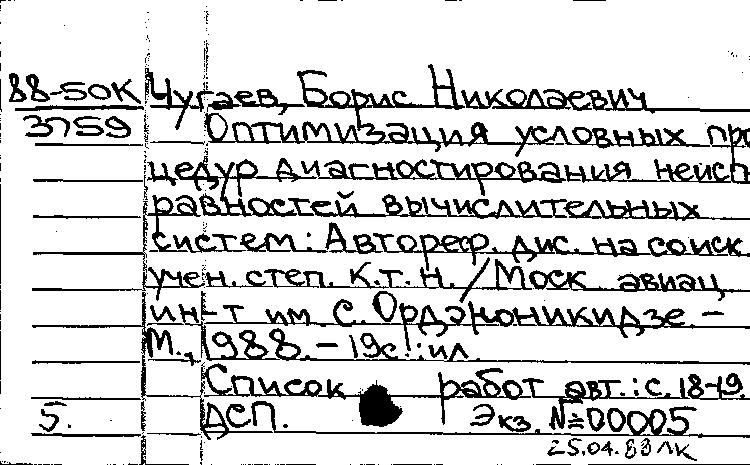 88-50К Чугаев, Борис Николаевич
3759 Оптимизация условных про
цедур диагностирования неисп
равностей вычислительных
систем: Автореф. дис. на соиск.
учен. степ. к.т.н. / Моск авиац.
ин-т им. С. Орджоникидзе. –
М., 1988. – 19с.: ил.
Список работ авт.: с. 18-19.
5. ДСП. Экз. №00005
25.04.88 ЛК